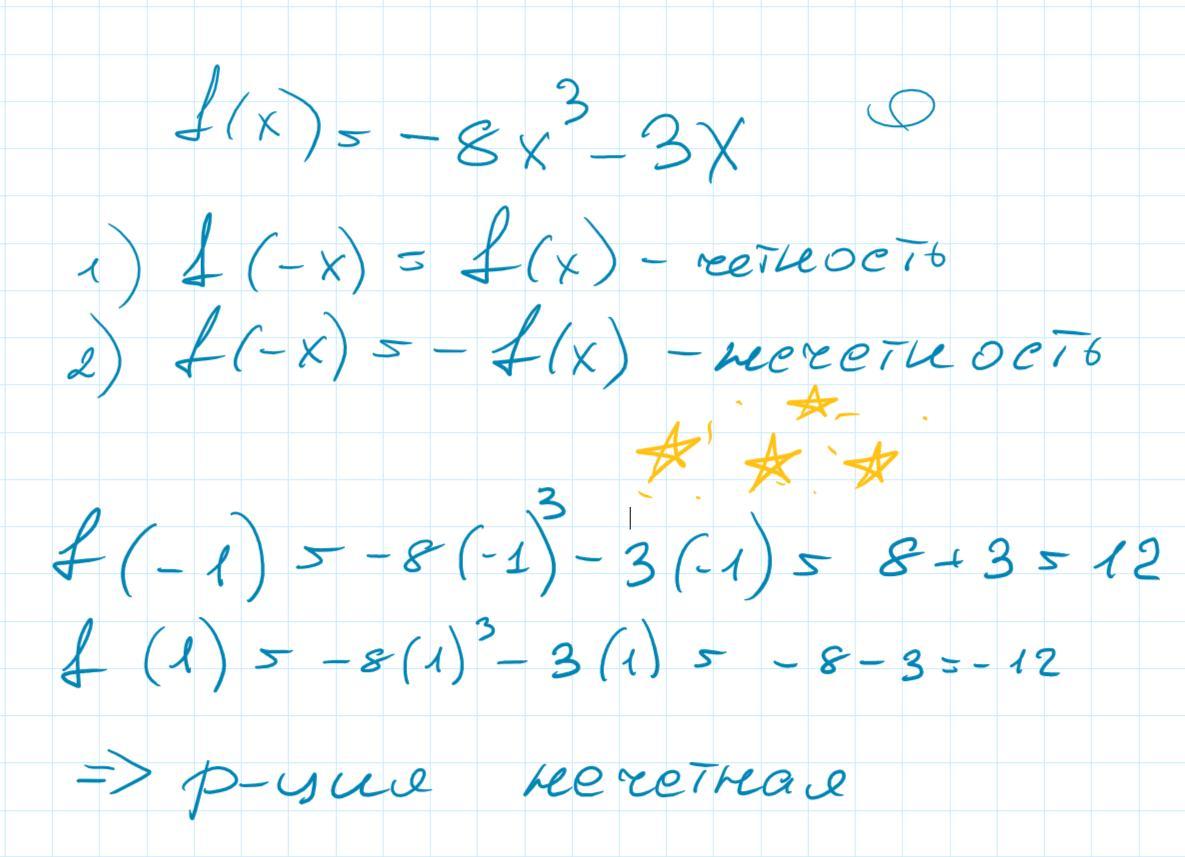 f(x) = -8x³ - 3x
1) f(-x) = f(x) - четность
2) f(-x) = - f(x) - нечетность
f(-1) = -8(-1)³ - 3(-1) = 8 + 3 = 12
f(1) = -8(1)³ - 3(1) = -8 - 3 = -12
=> р-ция нечетная